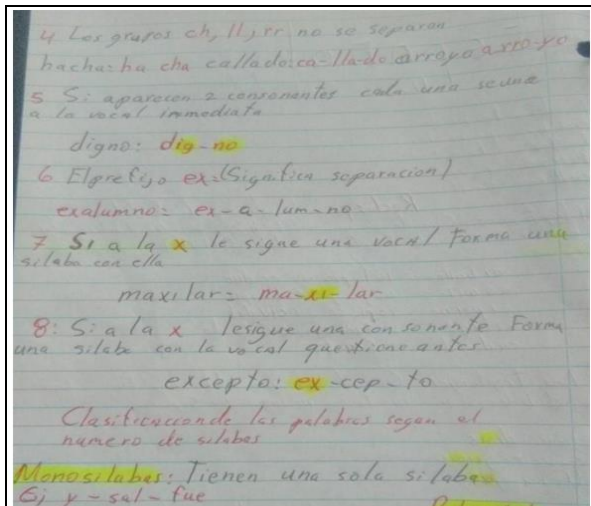 4 Los grupos ch, ll, rr no se separan
hacha: ha cha callado: ca-lla-do arroyo arro-yo
5 Si aparecen 2 consonantes cada una se une
a la vocal immediata
digno: dig-no
6 El prefijo ex= (Significa separacion)
exalumno= ex-a-lum-no
7 Si a la x le sigue una vocal Forma una
silaba con ella
maxilar= ma-xi-lar
8: Si a la x le sigue una consonante Forma
una silabe con la vocal que tiene antes
excepto: ex-cep-to
Clasificacion de las palabras segun el
numero de silabas
Monosilabas: Tienen una sola silaba
Ej y-sal-fue